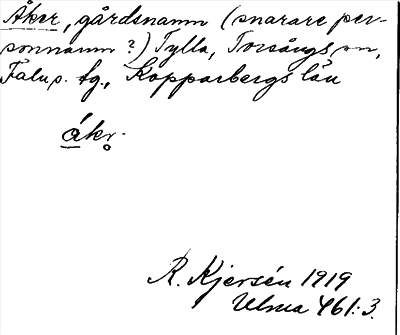 Åker, gårdsnamn (snarare per-
sonnamn?) Tylla, Torsångs sn,
Falu s. tg., Kopparbergs län
åkr.
R. Kjersén 1919
Ulma 461:3.